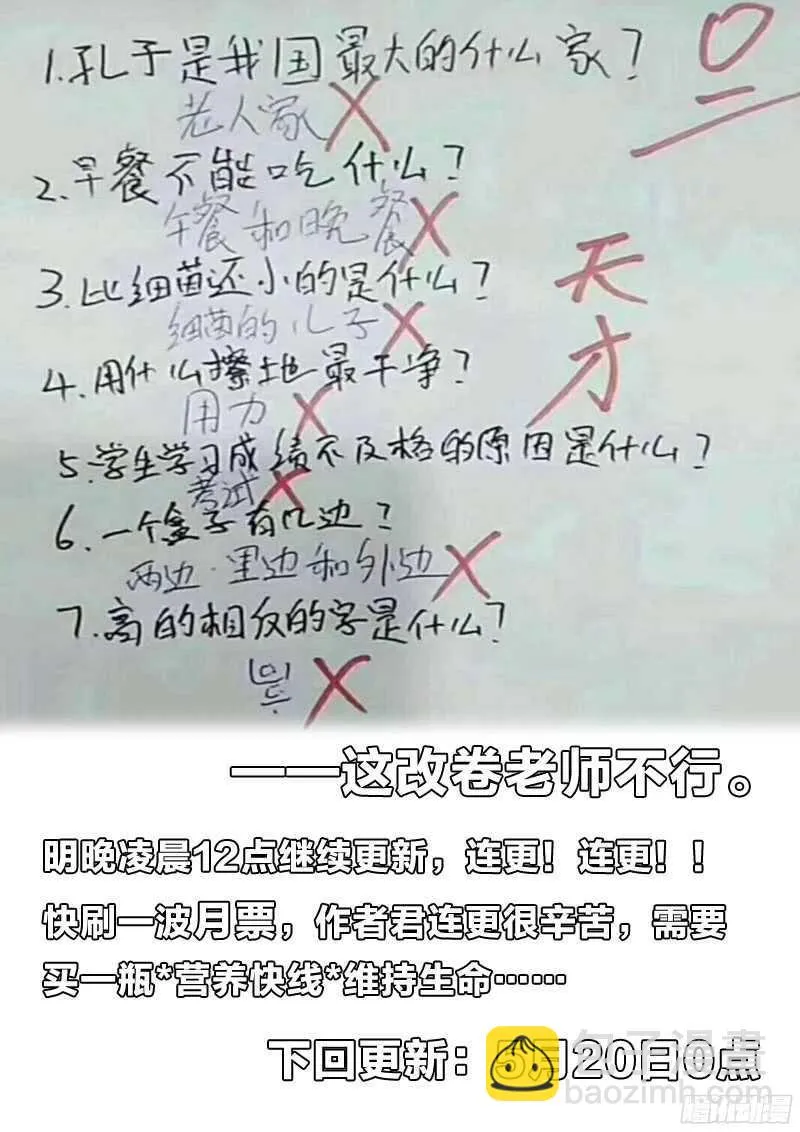 1.孔子是我国最大的什么家？
0
老人家
2.早餐不能吃什么？
午餐和晚餐
3.比细菌还小的是什么？
天才
细菌的儿子
4.用什么擦地最干净？
用力
5.学生学习成绩不及格的原因是什么？
考试
6.一个盒子有几边？
两边.里边和外边
7.高的相反的字是什么？
——这改卷老师不行。
明晚凌晨12点继续更新，连更！连更！！
快刷一波月票，作者君连更很辛苦，需要
买一瓶*营养快线*维持生命……
下回更新：5月20日0点
包子漫畫
baozimh.com